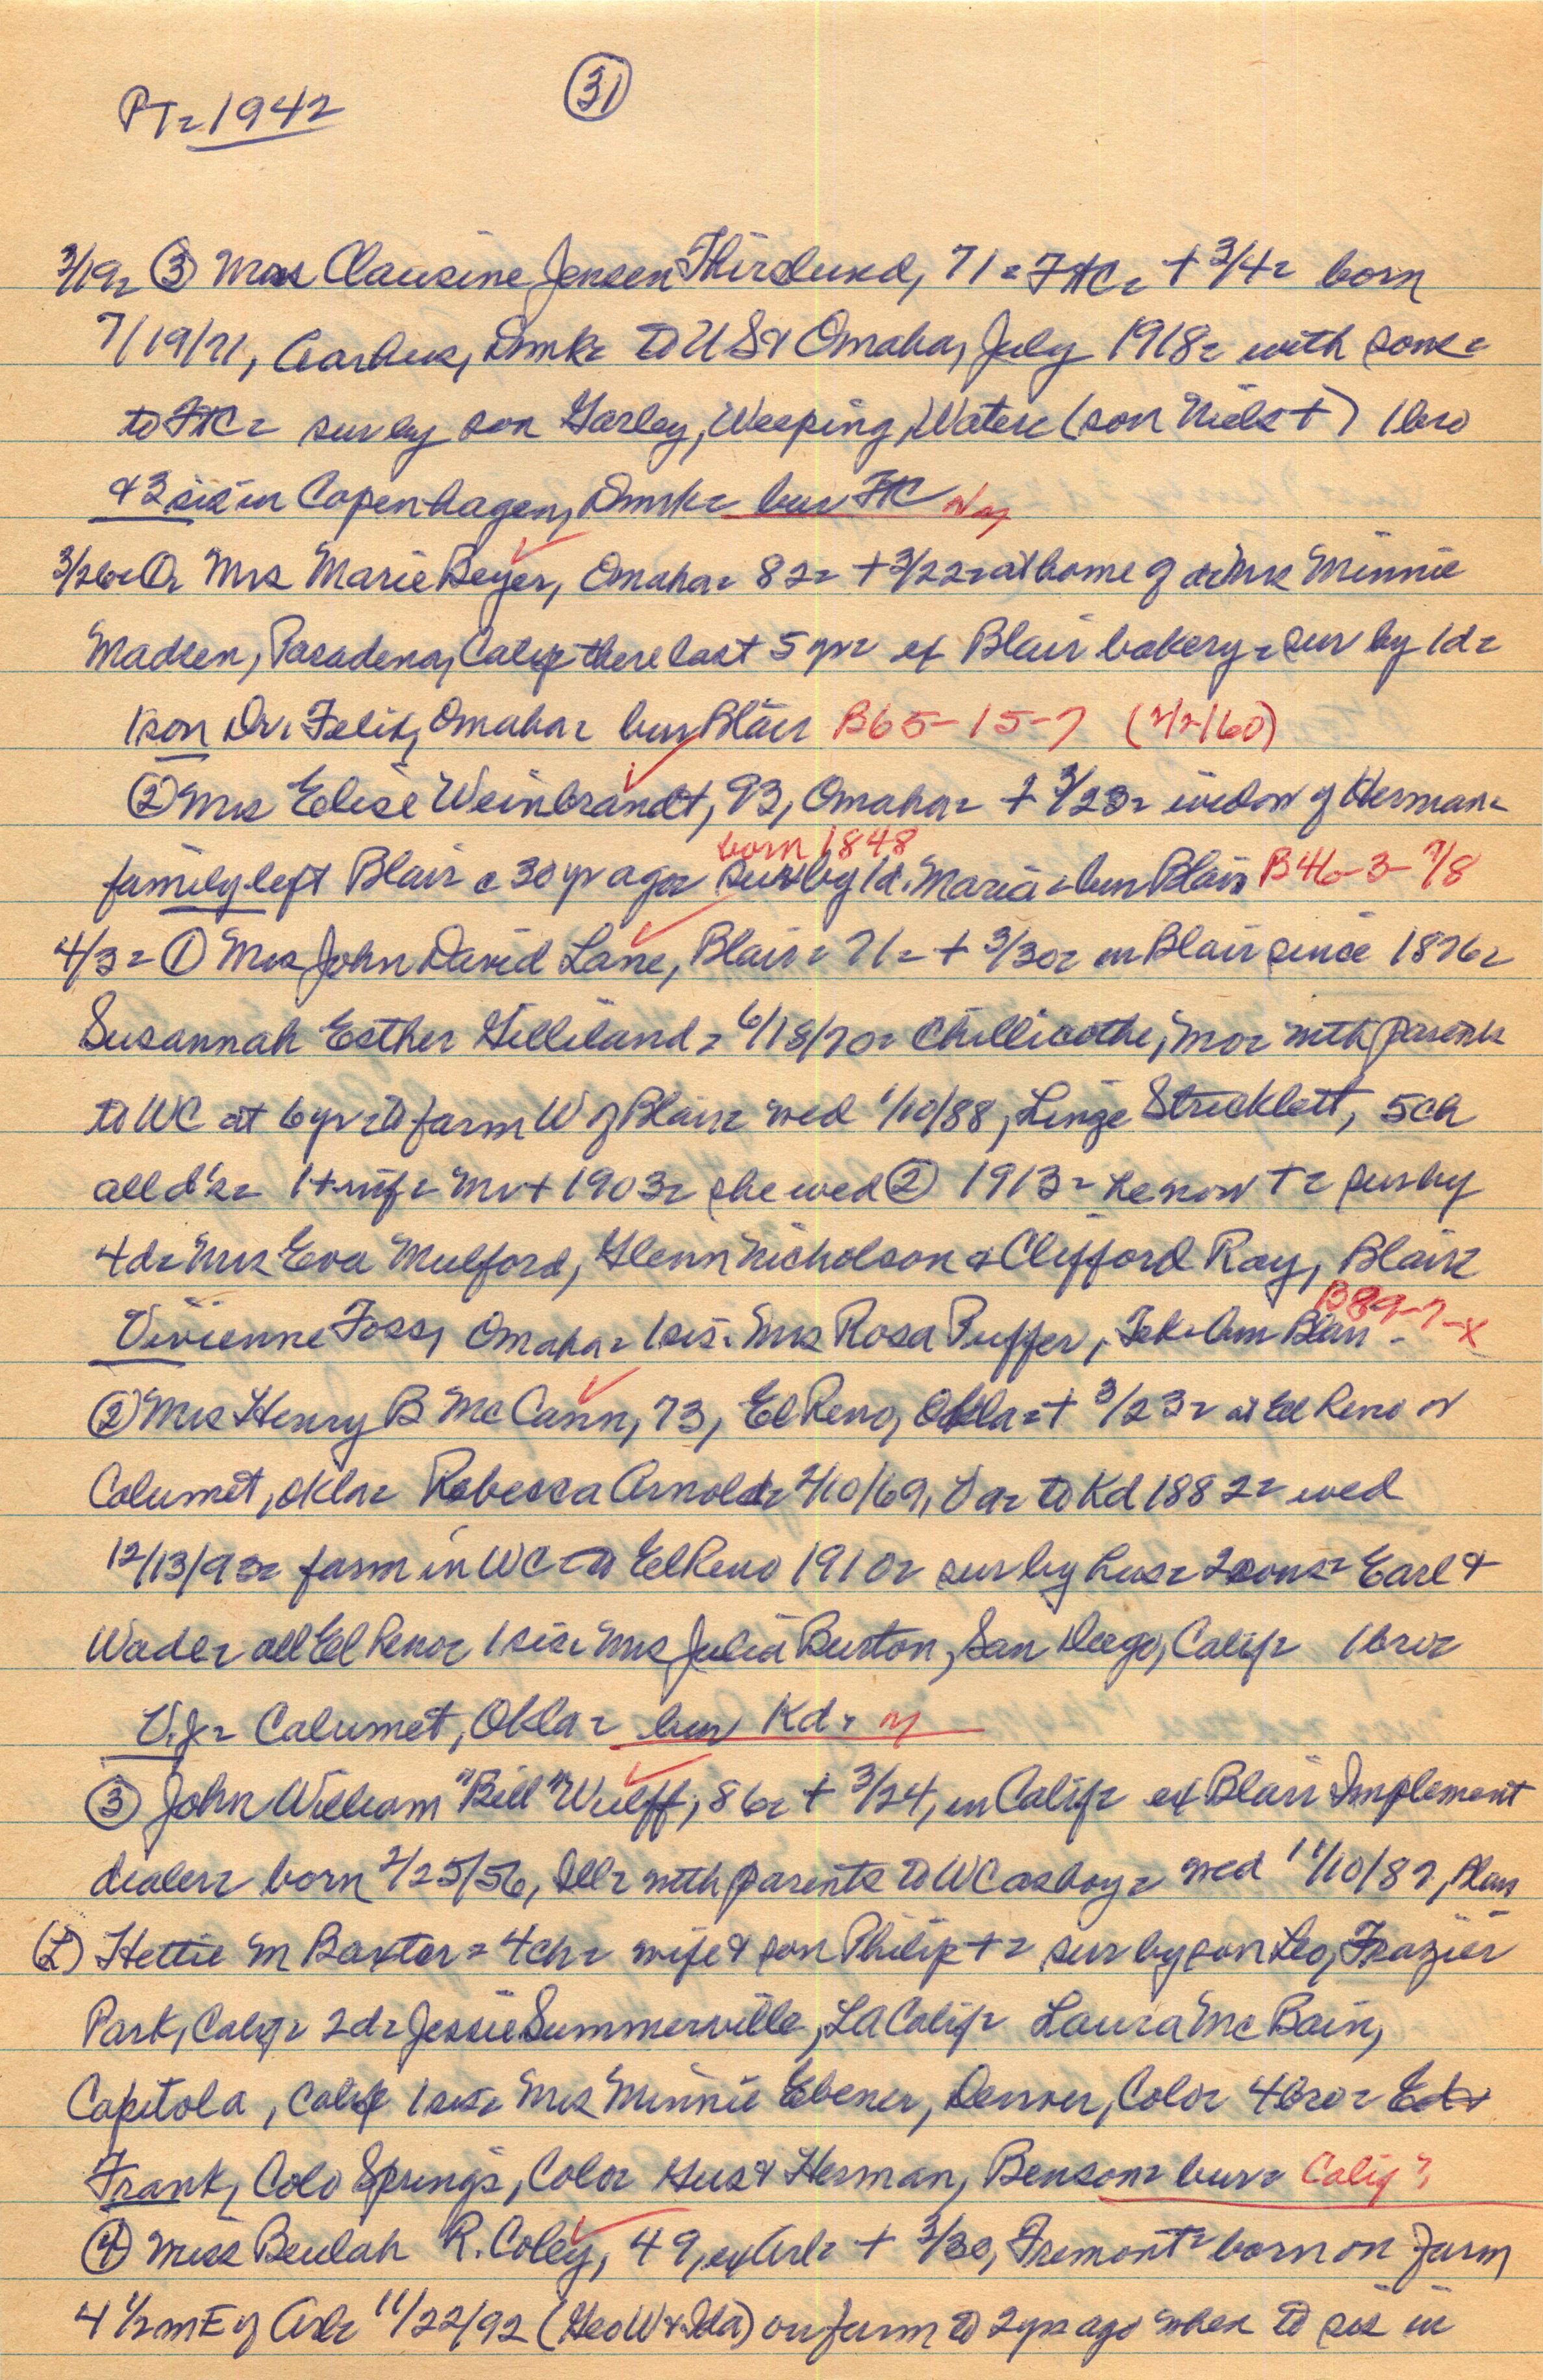 PT = 1942
31
3/19 = ③ Mrs Clausine Jensen Thirslund, 71 = FtC = + 3/4 = born
7/19/71, Aarhus, Dmk = to US & Omaha, July 1918 = with sons =
to FtC = sur by son Harley, Weeping Water = (son Niels +) 1 bro
& 3 sis in Copenhagen, Dmk = bur FtC
3/26 = ① Mrs Marie Beyer, Omaha = 82 = + 3/22 = at home of d = Mrs Minnie
Madsen, Pasadena, Calif = there last 5 yr = ex Blair bakery = sur by 1 d =
1 son Dr. Felix, Omaha = bur Blair B65-15-7 (2/2/60)
② Mrs Elise Weinbrandt, 93, Omaha = + 3/23 = widow of Herman =
born 1848
family left Blair c 30 yr ago = sur by 1 d. Maria = bur Blair B46-3-7/8
4/3 = ① Mrs John David Lane, Blair = 71 = + 3/30 = in Blair since 1876 =
Susannah Esther Gilliland = 6/18/70 = Chillicothe, Mo = with parents
to WC at 6 yr = to farm W of Blair = wed 1/10/88, Linze Stricklett, 5 ch
all d's = 1 + inf = Mr + 1903 = she wed ② 1913 = he now + = sur by
4 d = Mrs Eva Mulford, Glenn Nicholson & Clifford Ray, Blair =
B89-7-x
Vivienne Foss, Omaha = 1 sis. Mrs Rosa Puffer, Tek = bur Blair -
② Mrs Henry B McCann, 73, El Reno, Okla = + 3/23 = at El Reno or
Calumet, Okla = Rebecca Arnold = 2/10/69, Va = to Kd 1882 = wed
12/13/93 = farm in WC = to El Reno 1910 = sur by hus = 2 sons = Earl &
Wade = all El Reno = 1 sis = Mrs Julia Burton, San Diego, Calif = 1 bro =
V.J. = Calumet, Okla = bur Kd. ny
③ John William "Bill" Wulff, 86 = + 3/24, in Calif = ex Blair Implement
dealer = born 2/25/56, Ill = with parents to WC as boy = wed 11/10/87, Blair
(L) Hettie M Baxter = 4 ch = wife & son Philip + = sur by son Leo, Frazier
Park, Calif = 2 d = Jessie Summerville, LA Calif = Laura McBain,
Capitola, Calif 1 sis = Mrs Minnie Ebener, Denver, Colo = 4 bro = Ed &
Frank, Colo Springs, Colo = Gus & Herman, Benson = bur = Calif?
④ Miss Beulah R. Coley, 49, ex Arl = + 3/30, Fremont = born on farm
4 1/2 m E of Arl = 11/22/92 (Geo W & Ida) on farm to 2 yrs ago when to sis in